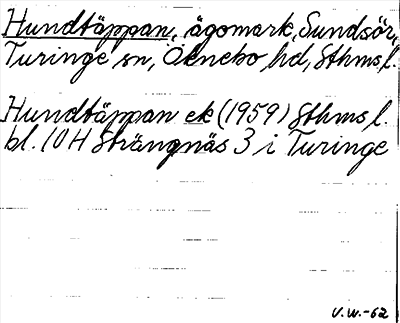 Hundtäppan, ägomark, Sundsör,
Turinge sn, Öknebo hd, Sthms l.
Hundtäppan ek (1959) Sthms l.
bl. 10H Strängnäs 3 i Turinge
V.W.-62